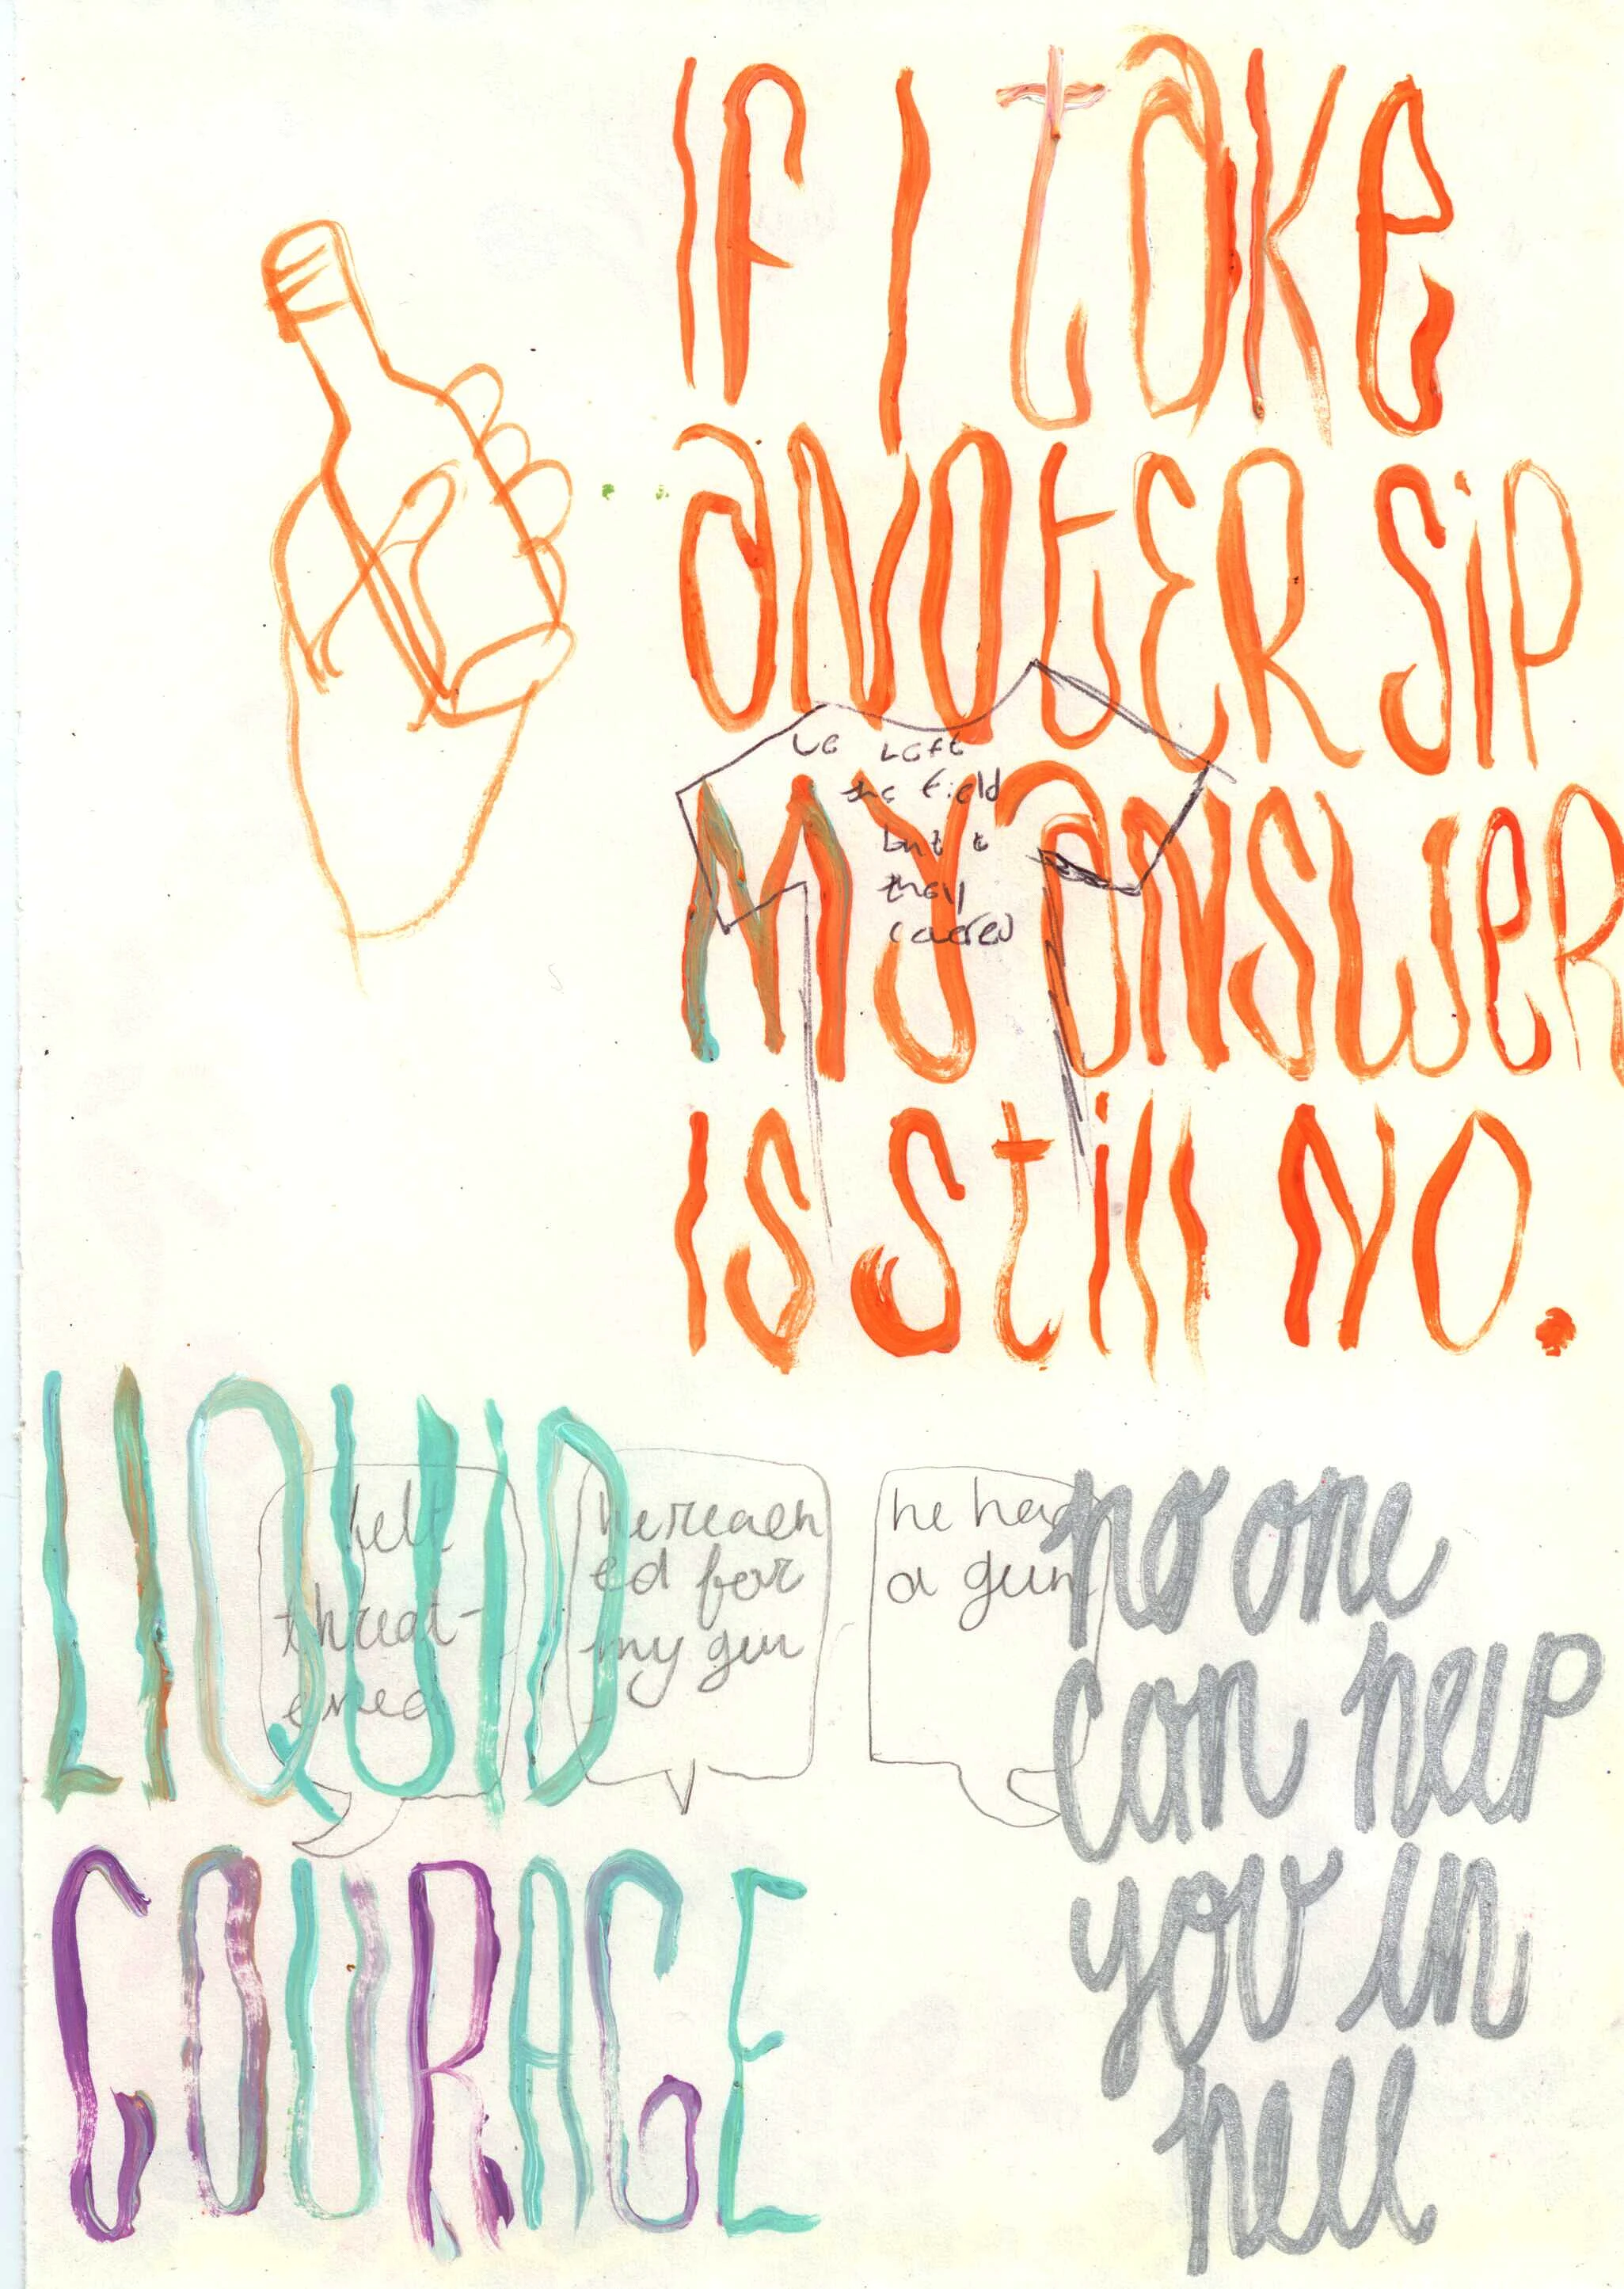 IF I take
anoter sip
My answer
is still no.
Left
the field
but
they
LIQUiD
COURAGE
felt
threat-
ened
he reach
ed for
my gun
he had
a gun
no one
can help
you in
hell